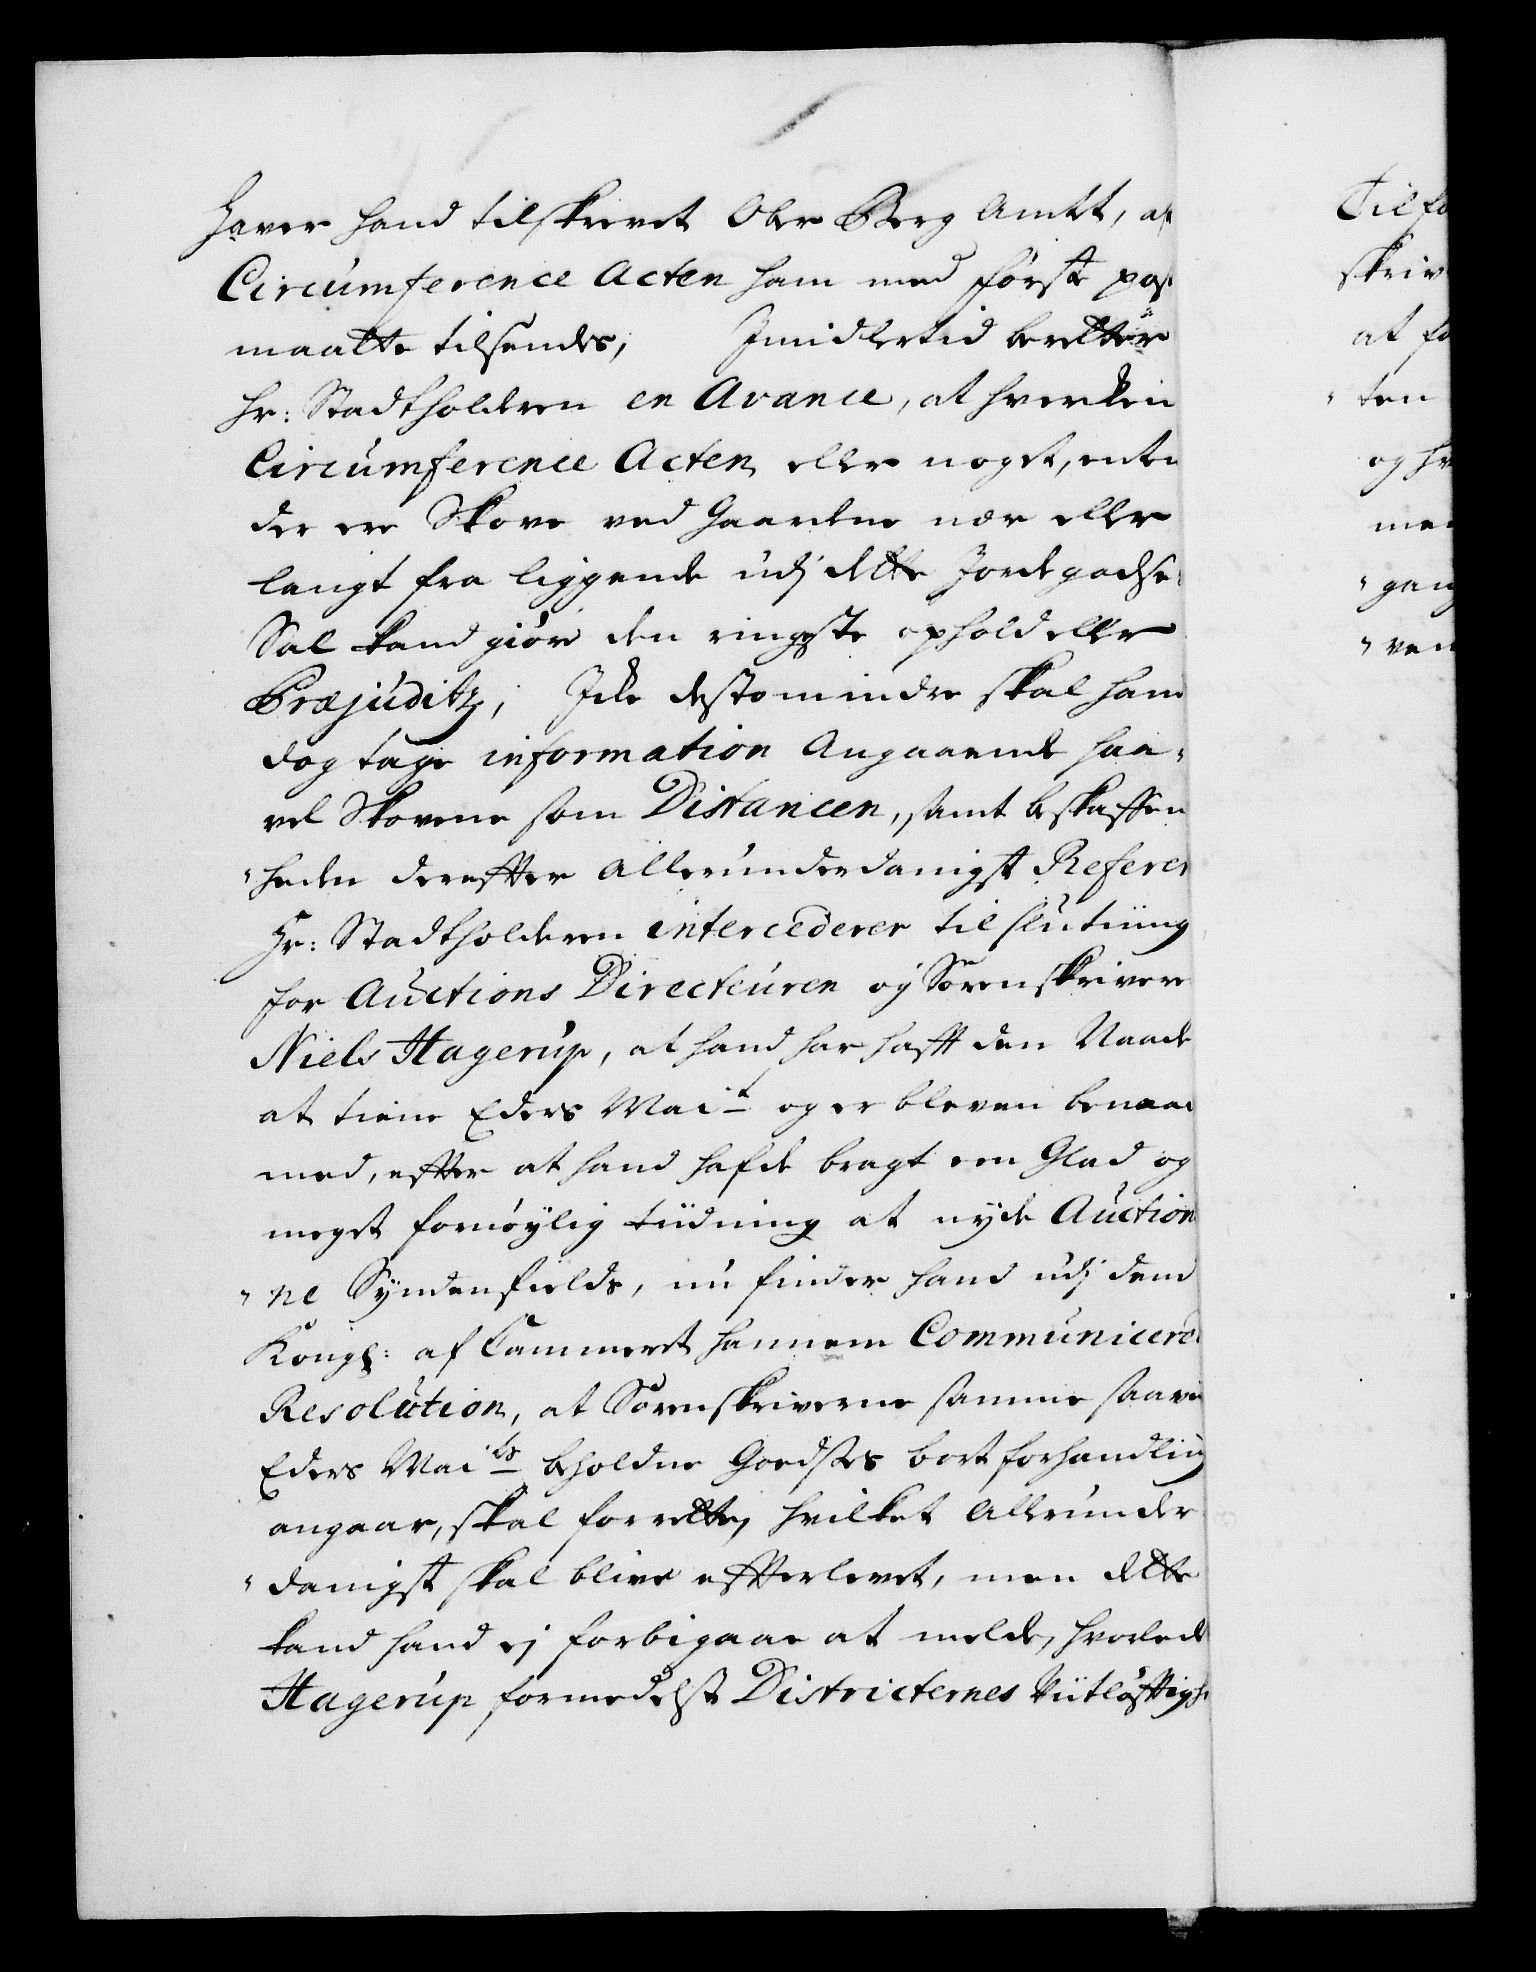 Haver hand tilskrevet Ober Berg Amtet, at
Circumference Acten ham med første post
maatte tilsendes; Imidlertid beretter
Hr: Stadtholderen en Avance, at hverken
Circumference Acten eller noget, enten
der ere Skove ved Gaardene nær eller
langt fra liggende udj dette Jordegodses
Sal kand giøre den ringeste ophold eller
Præjuditz; Icke destomindre skal hand
dog tage information Angaaende saa-
vel Skovene som Distancen, samt beskaffen
"heden derefter Allerunderdanigst Referer
Hr: Stadtholderen intercederer til slutning
for Auctions Directeuren og Sorenskriver
Niels Hagerup, at hand har hafft den Naade
at tiene Eders Mait og er bleven benaad
med, effter at hand hafde bragt een Glad og
meget fornøylig tiidning at nyde Auction
"ne Syndenfields, nu finder hand udj dend
Kongl: af Cammeret hannem Communicered
Resolution, at Sorenskriverne samme saavit
Eders Maits beholdne Goedses bortforhandling
angaar, skal forrette, hvilket Allerunder
"danigst skal blive effterlevet, men dette
kand hand ej forbigaae at melde, hvorledes
Hagerup formedelst Districternes Viitløfftighed
Til fo
skriv
at fo
"ten
og hv
men
"gang
"ven